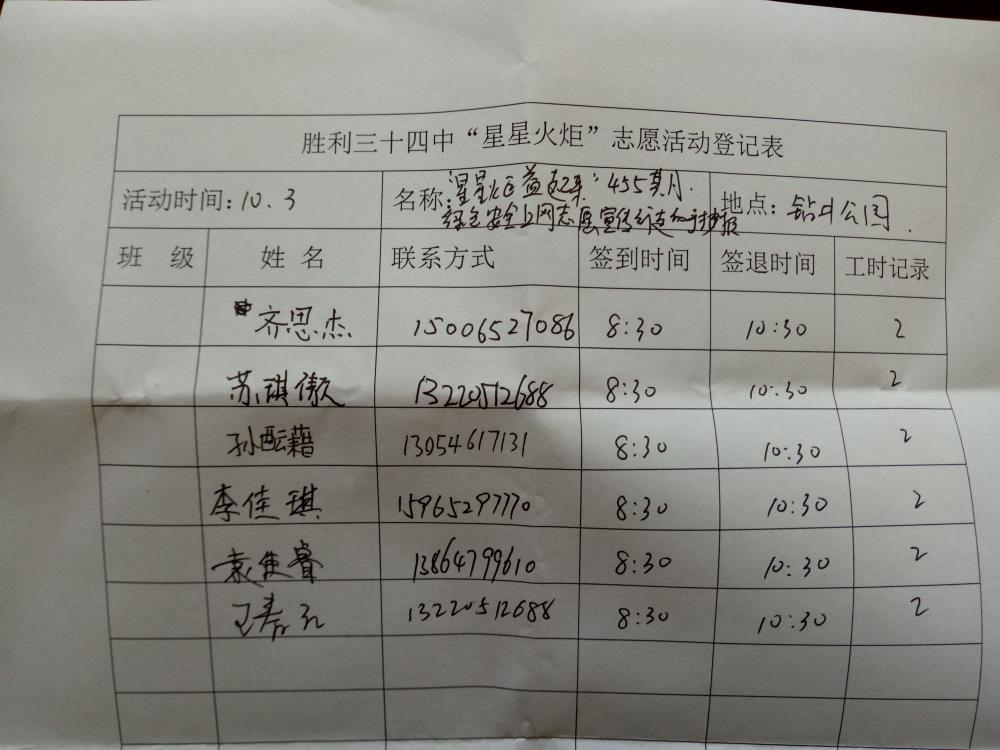 胜利三十四中“星星火炬”志愿活动登记表
活动时间:10.3 名称:星星火炬益起来“455 地点:钻井公园
绿色安全上网志愿宣传
班 级 姓 名 联系方式 签到时间 签退时间 工时记录
齐思杰 15006527086 8:30 10:30 2
苏琪傲 13220512688 8:30 10:30 2
孙酝藉 13054617131 8:30 10:30 2
李佳琪 15965297770 8:30 10:30 2
袁隹睿 13864799610 8:30 10:30 2
13220512688 8:30 10:30 2